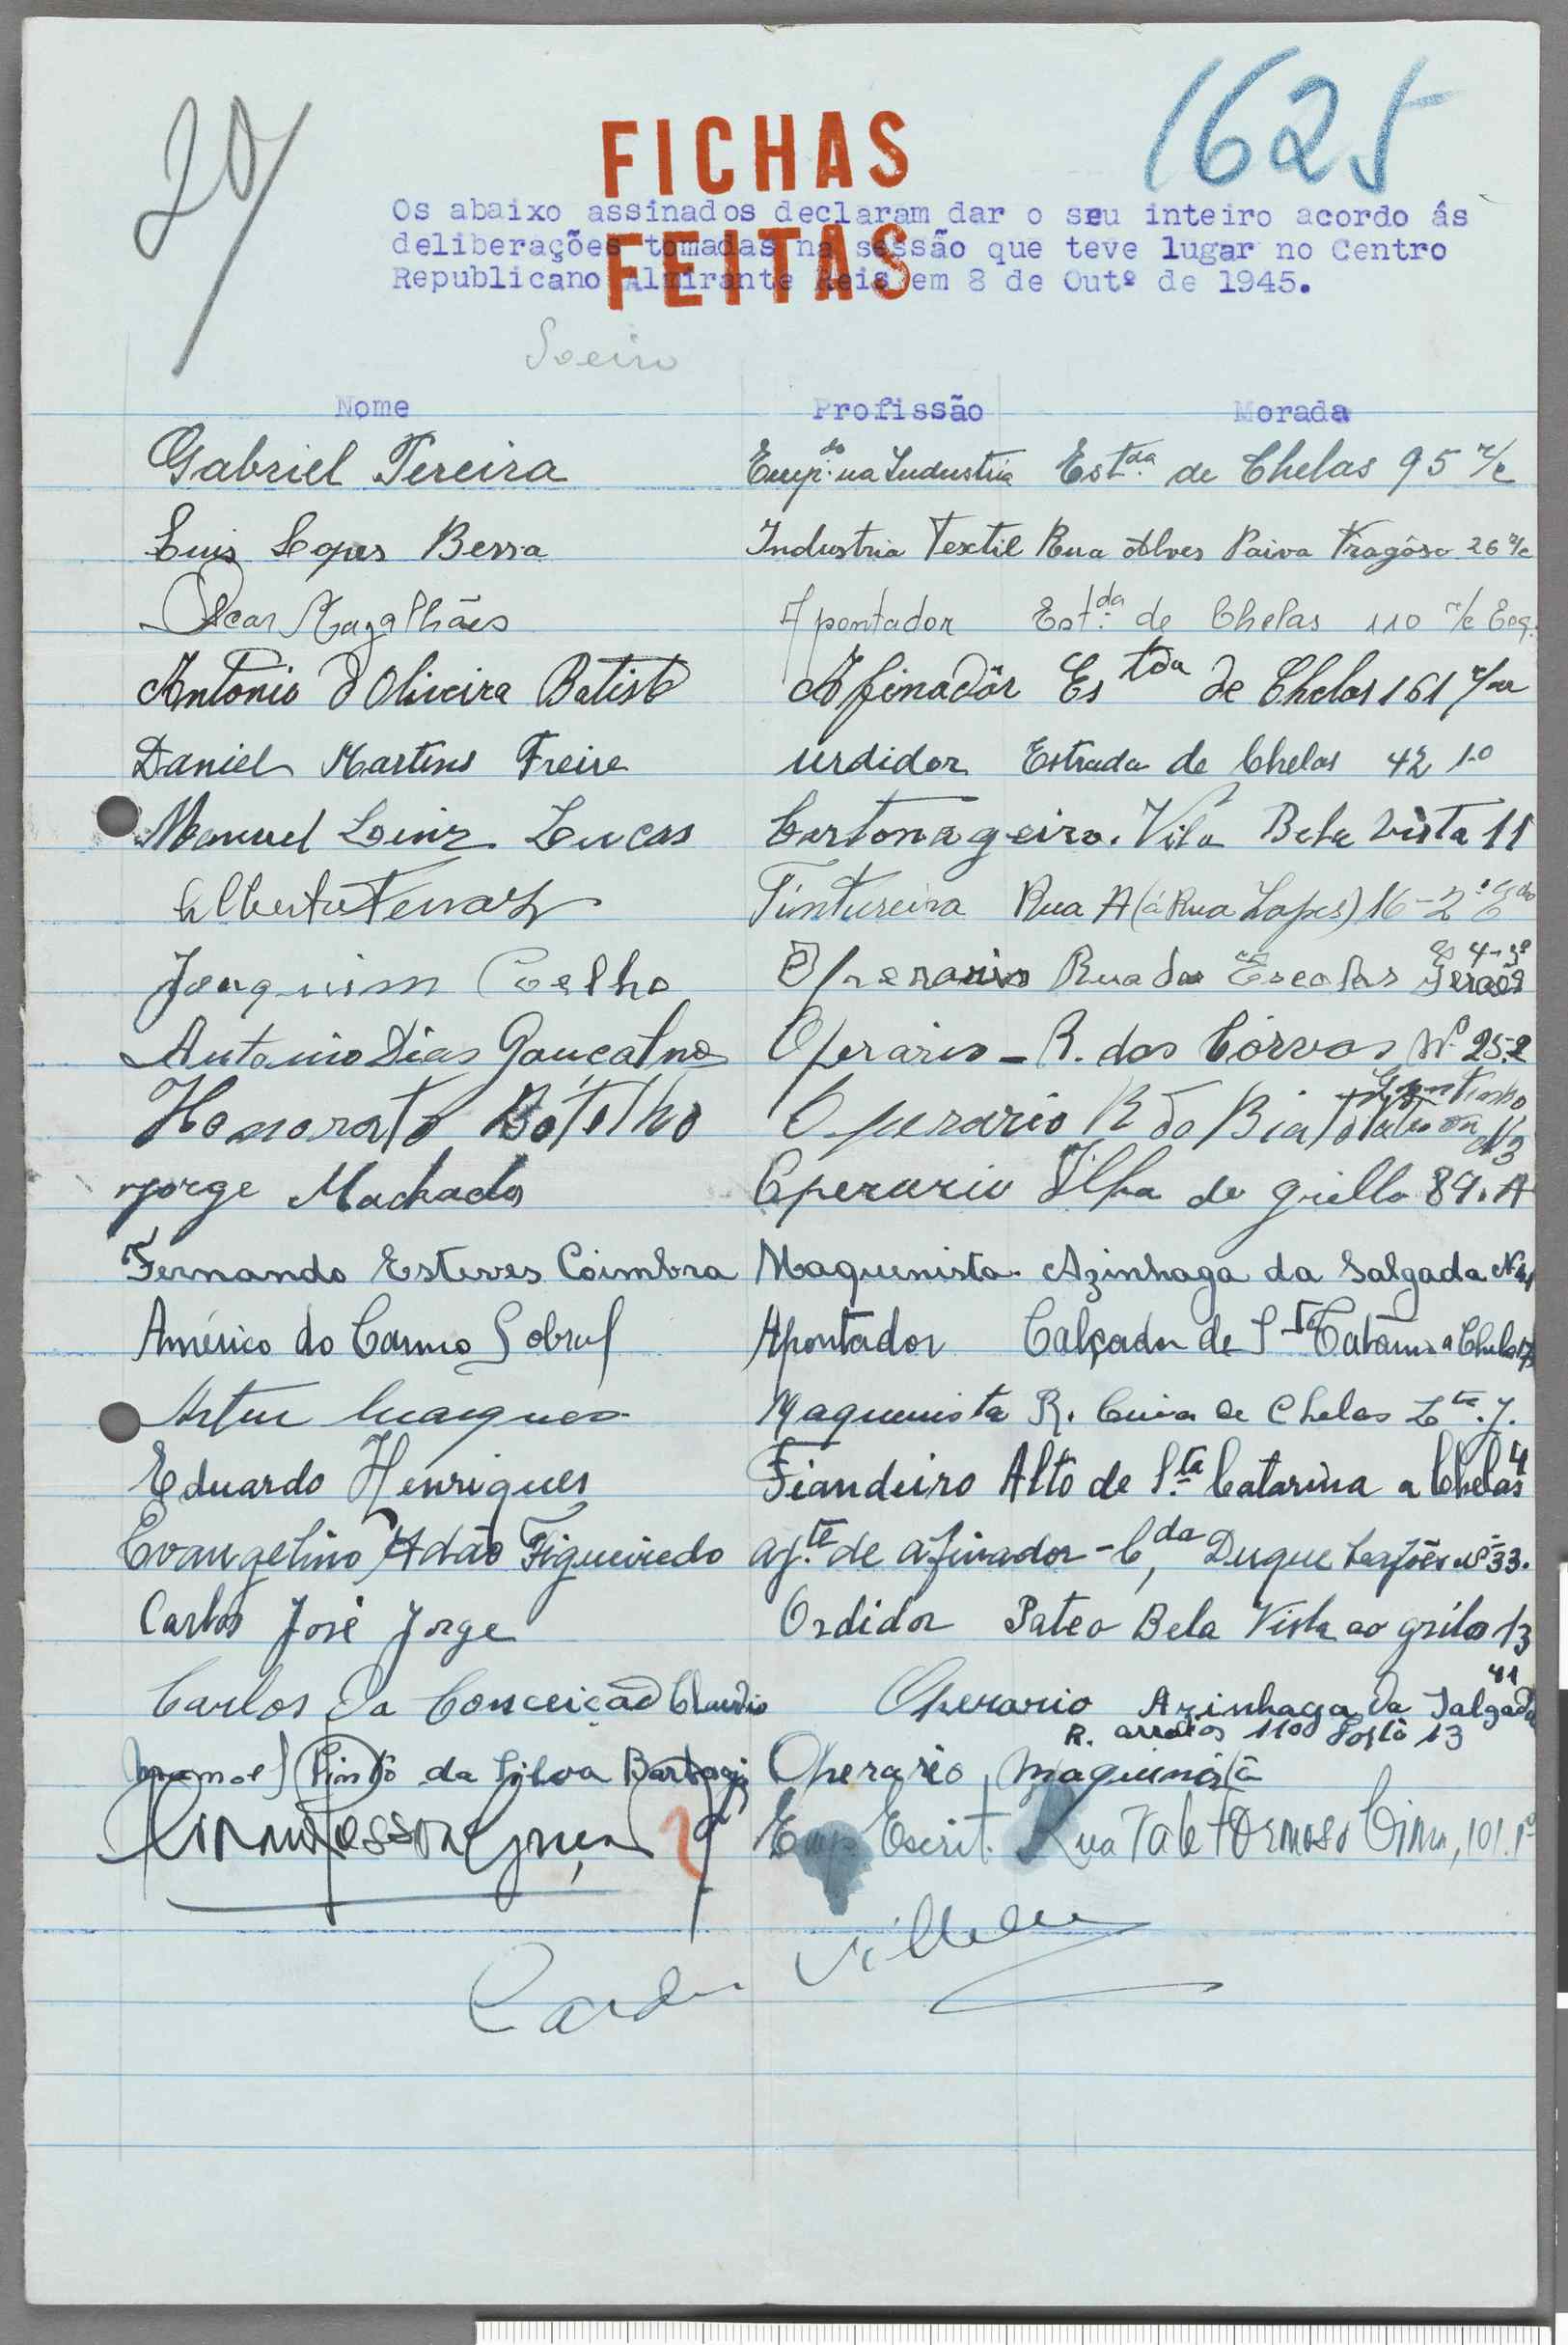 20
1625
FICHAS
FEITAS
Os abaixo assinados declaram dar o seu inteiro acordo ás
deliberações tomadas na sessão que teve lugar no Centro
Republicano Almirante Reis em 8 de Outº de 1945.
Soeiro
Nome Profissão Morada
Gabriel Pereira Emp.do na Industria Est.da de Chelas 95 r/c
Luis Lopes Bessa Industria Textil Rua Alves Paiva Fragôso 26 r/c
Oscar Magalhães Apontador Est.da de Chelas 110 r/c Esq.
Antonio d'Oliveira Batista Afinadôr Estda de Chelas 161
Daniel Martins Freire urdidor Estrada de Chelas 42 1º
Manuel Lucas Cartonageiro. Vila Bela Vista 11
Alberto Ferraz Tintureira Rua A (á Rua Lopes) 16-2º
Joaquim Coelho Operario Rua das Escolas Geraes 4-3º
Antonio Dias Gonçalves Operario - R. dos Córvos Nº 25-2
Honorato Bótelho Operario R do Biato Nº 3
Jorge Machado Operario Ilha do grillo 89. A
Fernando Esteves Coimbra Maquenista Azinhaga da Salgada Nº 41
Américo do Carmo Sobral Apontador Calçada de Sta Catarina a Chelas
Artur Marques Maquinista R. Cima de Chelas Lte. J.
Eduardo Henriques Fiandeiro Alto de S.ta Catarina a Chelas 4
Evangelino Adão Figueiredo aj.te de afinador - C,da Duque Lafões nº 33.
Carlos José Jorge Ordidor Pateo Bela Vista ao grilo 13
Carlos da Conceição Claudio Operario Azinhaga da Salgada 41
R. arroios 110 Porta 13
Manoel Pinto da Silva Operario maquinista
Emp. Escrit. Rua Vale Formoso Cima, 101. 1º